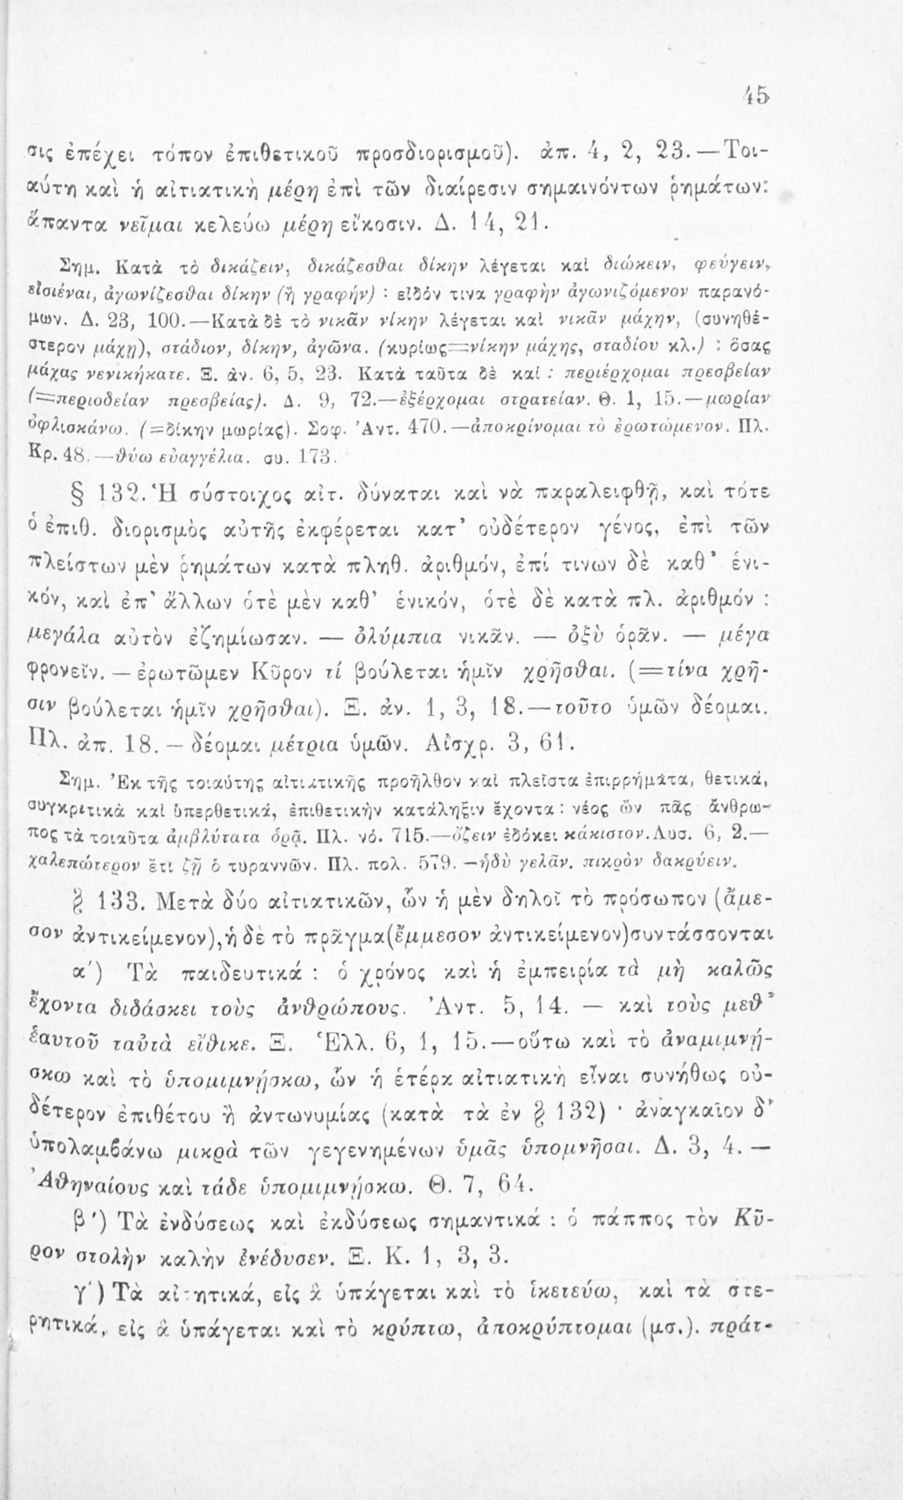 45
σις ἐπέχει τόπον ἐπιθετικοῦ προσδιορισμοῦ). ἀπ. 4, 2, 23.—Τοι-
αύτη καὶ ἡ αἰτιατικὴ μέρη ἐπὶ τῶν διαίρεσιν σημαινόντων ῥημάτων:
ἅπαντα νεῖμαι κελεύω μέρη εἴκοσιν. Δ. 14, 21.
Σημ. Κατὰ τὸ δικάζειν, δικάζεσθαι δίκην λέγεται καὶ διώκειν, φεύγειν,
εἰσιέναι, ἀγωνίζεσθαι δίκην (ἢ γραφήν) : εἰδόν τινα γραφὴν ἀγωνιζόμενον παρανό-
μων. Δ. 23, 100.—Κατὰ δὲ τὸ νικᾶν νίκην λέγεται καὶ νικᾶν μάχην, (συνηθέ-
στερον μάχῃ), στάδιον, δίκην, ἀγῶνα. (κυρίως=νίκην μάχης, σταδίου κλ.) : ὅσας
μάχας νενικήκατε. Ξ. ἀν. 6, 5, 23. Κατὰ ταῦτα δὲ καί : περιέρχομαι πρεσβείαν
(=περιοδείαν πρεσβείας). Δ. 9, 72.—ἐξέρχομαι στρατείαν. Θ. 1, 15.—μωρίαν
ὀφλισκάνω. (=δίκην μωρίας). Σοφ. Ἀντ. 470.—ἀποκρίνομαι τὸ ἐρωτώμενον. Πλ.
Κρ. 48.—θύω εὐαγγέλια. συ. 173.
§ 132. Ἡ σύστοιχος αἰτ. δύναται καὶ νὰ παραλειφθῇ, καὶ τότε
ὁ ἐπιθ. διορισμὸς αὐτῆς ἐκφέρεται κατ’ οὐδέτερον γένος, ἐπὶ τῶν
πλείστων μὲν ῥημάτων κατὰ πληθ. ἀριθμόν, ἐπί τινων δὲ καθ’ ἑνι-
κόν, καὶ ἐπ’ ἄλλων ὁτὲ μὲν καθ’ ἑνικόν, ὁτὲ δὲ κατὰ πλ. ἀριθμόν :
μεγάλα αὐτὸν ἐζημίωσαν. — ὀλύμπια νικᾶν. — ὀξὺ ὁρᾶν. — μέγα
φρονεῖν. — ἐρωτῶμεν Κῦρον τί βούλεται ἡμῖν χρῆσθαι. (=τίνα χρῆ-
σιν βούλεται ἡμῖν χρῆσθαι). Ξ. ἀν. 1, 3, 18.—τοῦτο ὑμῶν δέομαι.
Πλ. ἀπ. 18. — δέομαι μέτρια ὑμῶν. Αἰσχρ. 3, 61.
Σημ. Ἐκ τῆς τοιαύτης αἰτιατικῆς προῆλθον καὶ πλεῖστα ἐπιρρήματα, θετικά,
συγκριτικὰ καὶ ὑπερθετικά, ἐπιθετικὴν κατάληξιν ἔχοντα : νέος ὢν πᾶς ἄνθρω-
πος τὰ τοιαῦτα ἀμβλύτατα ὁρᾷ. Πλ. νό. 715.—ὄζειν ἐδόκει κάκιστον. Λυσ. 6, 2.—
χαλεπώτερον ἔτι ζῇ ὁ τυραννῶν. Πλ. πολ. 579.—ἡδὺ γελᾶν. πικρὸν δακρύειν.
§ 133. Μετὰ δύο αἰτιατικῶν, ὧν ἡ μὲν δηλοῖ τὸ πρόσωπον (ἄμε-
σον ἀντικείμενον), ἡ δὲ τὸ πρᾶγμα (ἔμμεσον ἀντικείμενον) συντάσσονται
α΄) Τὰ παιδευτικά : ὁ χρόνος καὶ ἡ ἐμπειρία τὰ μὴ καλῶς
ἔχοντα διδάσκει τοὺς ἀνθρώπους. Ἀντ. 5, 14. — καὶ τοὺς μεθ’
ἑαυτοῦ ταὐτὰ εἴθικε. Ξ. Ἑλλ. 6, 1, 15.—οὕτω καὶ τὸ ἀναμιμνῄ-
σκω καὶ τὸ ὑπομιμνῄσκω, ὧν ἡ ἑτέρα αἰτιατικὴ εἶναι συνήθως οὐ-
δέτερον ἐπιθέτου ἢ ἀντωνυμίας (κατὰ τὰ ἐν § 132) · ἀναγκαῖον δ’
ὑπολαμβάνω μικρὰ τῶν γεγενημένων ὑμᾶς ὑπομνῆσαι. Δ. 3, 4. —
Ἀθηναίους καὶ τάδε ὑπομιμνῄσκω. Θ. 7, 64.
β΄) Τὰ ἐνδύσεως καὶ ἐκδύσεως σημαντικά : ὁ πάππος τὸν Κῦ-
ρον στολὴν καλὴν ἐνέδυσεν. Ξ. Κ. 1, 3, 3.
γ΄) Τὰ αἰτητικά, εἰς ἃ ὑπάγεται καὶ τὸ ἱκετεύω, καὶ τὰ στε-
ρητικά, εἰς ἃ ὑπάγεται καὶ τὸ κρύπτω, ἀποκρύπτομαι (μσ.). πράτ-